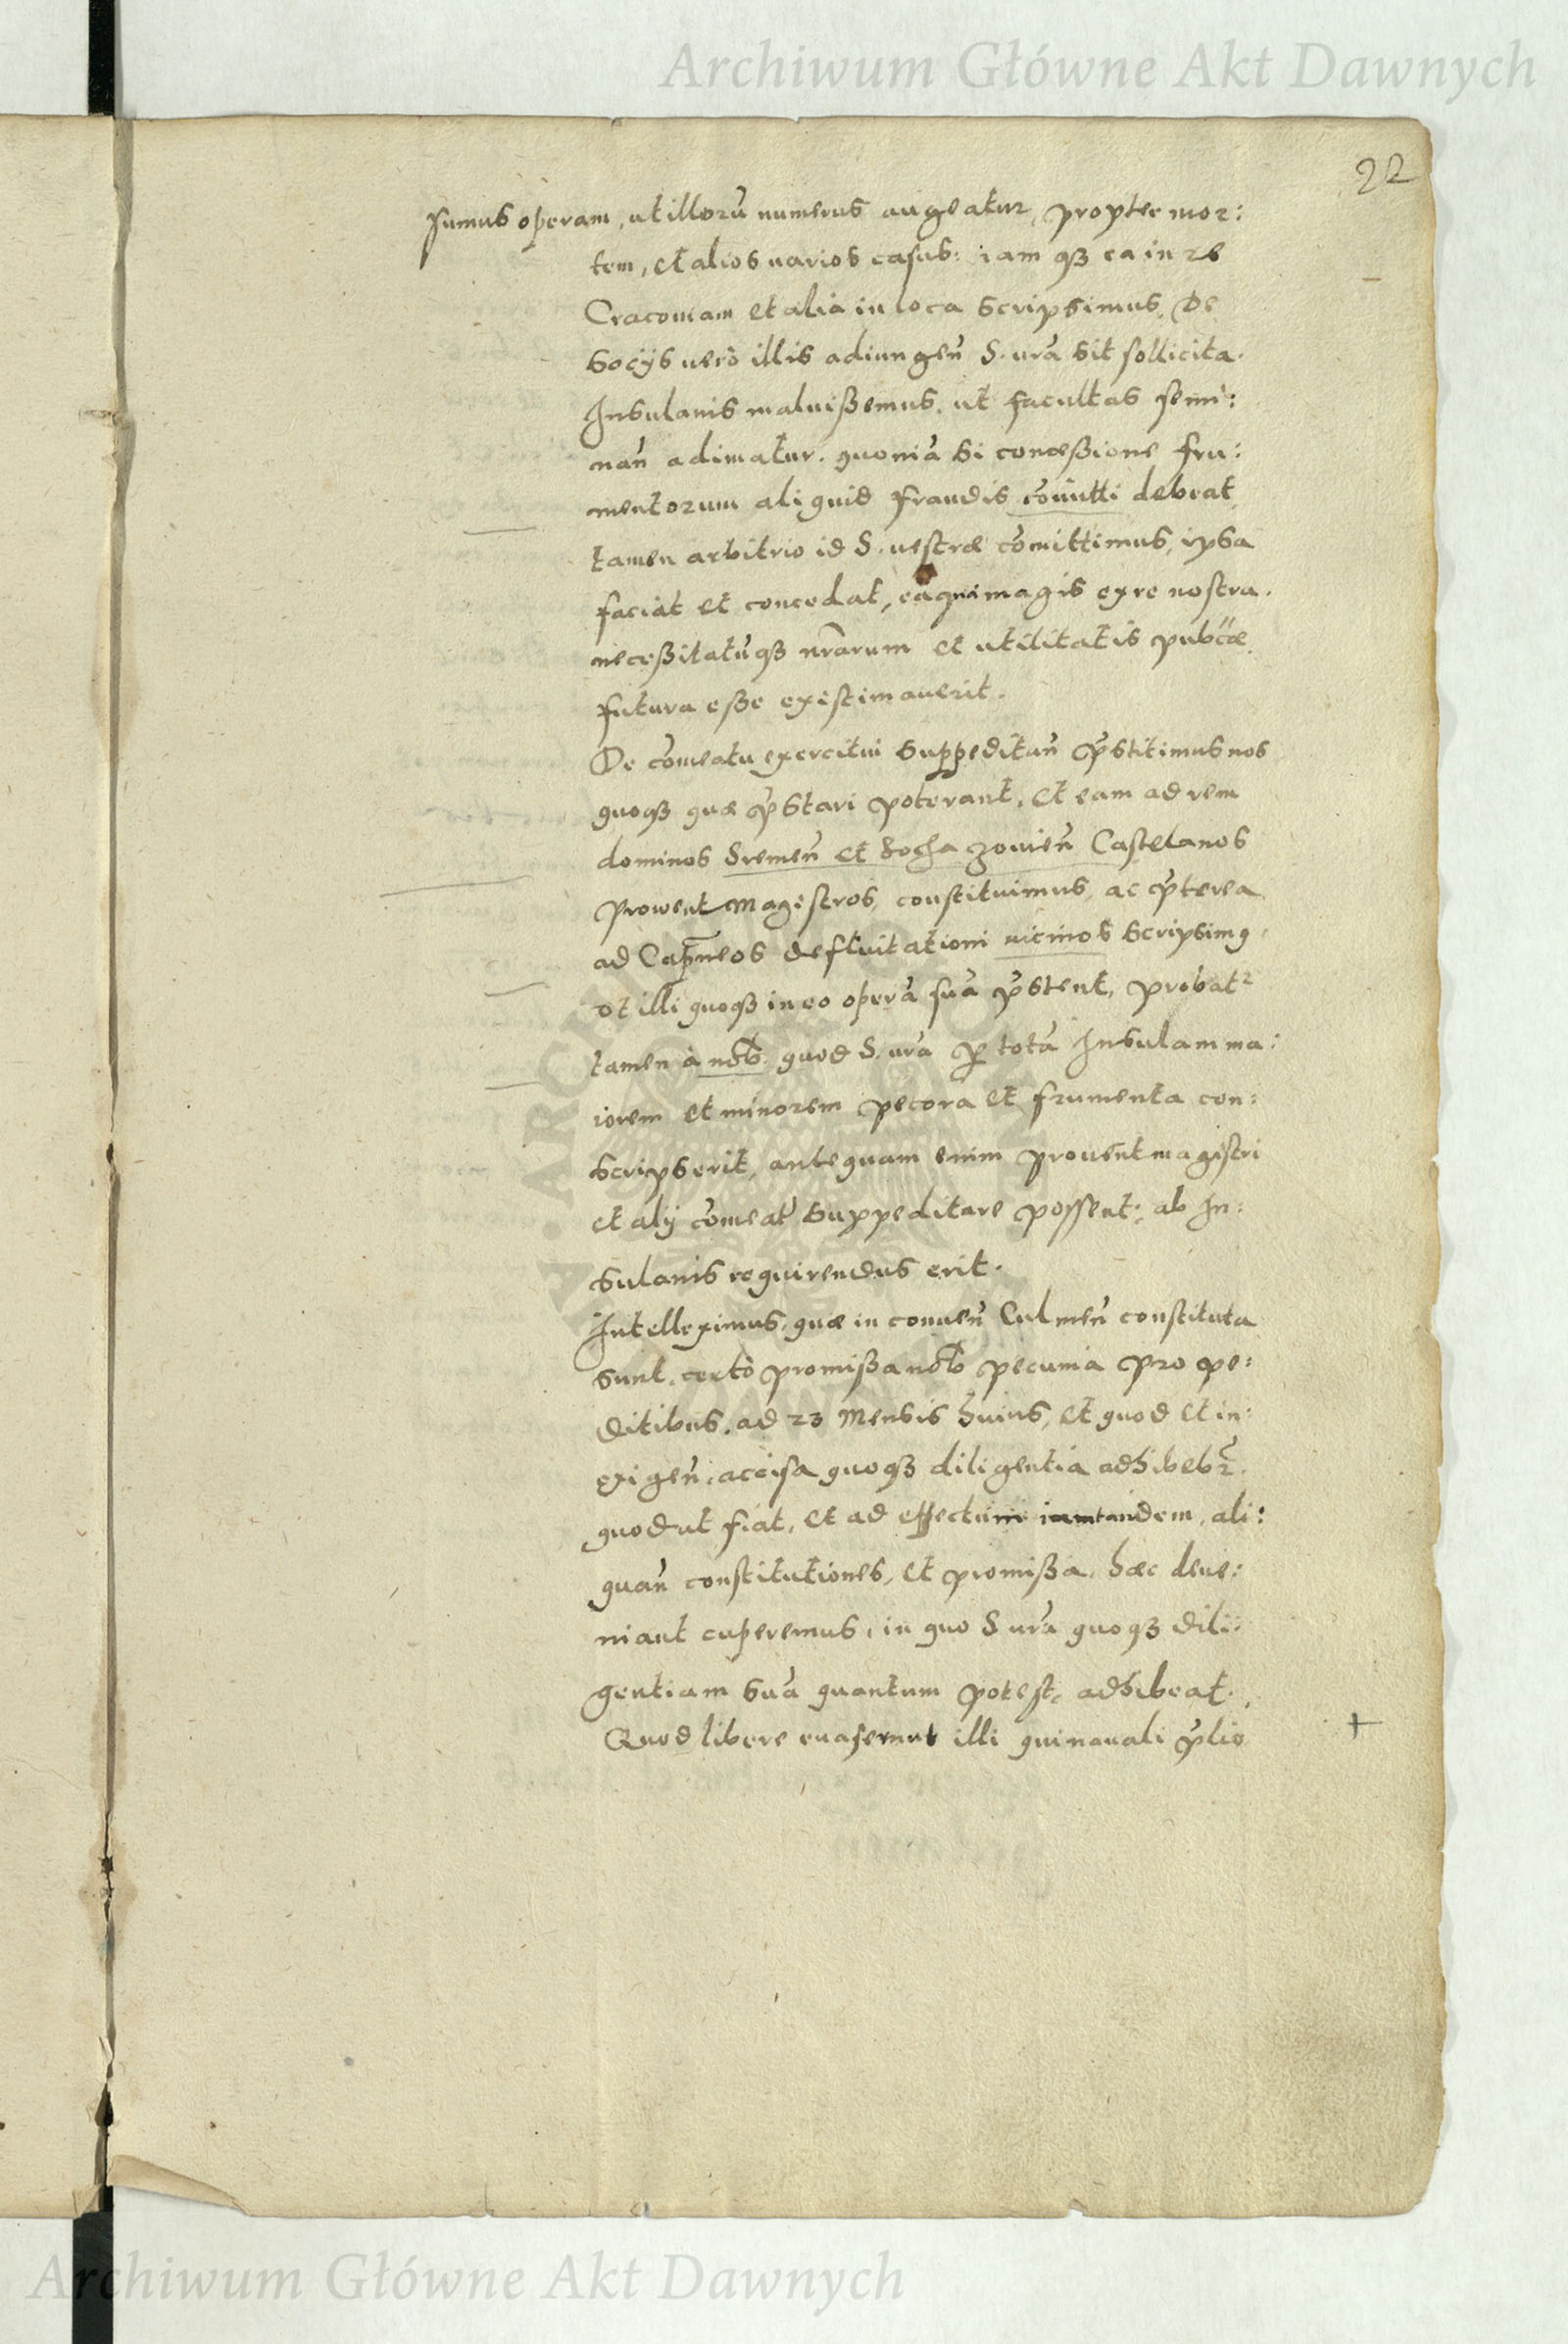 Archiwum Główne Akt Dawnych
22
sumus operam, ut illorū numerus augeatur, propter mor:
tem, et alios varios casus: iam qȝ ea in re
Cracoviam et alia in loca scripsimus. De
socijs verò illis adiungen̄ S. vr̄a sit sollicita.
Insulanis maluissemus, ut facultas semi:
nan̄ adimatur. quoniā si concessione fru:
mentorum aliquid fraudis com̄itti debeat,
tamen arbitrio id S. vestræ com̄ittimus, ipsa
faciat et concedat, ea quæ magis ex re nostra.
necessitatūqȝ nr̄arum et utilitatis pub͞cæ
futura esse existimaverit.
De com̄eatu exercitui suppeditan̄ p̄stitimus nos
quoqȝ quæ p̄stari poterant, et eam ad rem
dominos Sremen̄ et Sochazovien̄ Castelanos
Prowent Magistros, constituimus, ac p̄terea
ad Cap̄neos defluitationi vicinos scripsimꝰ
ut illi quoqȝ in eo operā suā p̄stent, probatr
tamen à nob̄. quod S. vr̄a ꝑ totā Insulam ma:
iorem et minorem pecora et frumenta con:
scripserit, antequam enim provent magistri
et alij com̄eat̄ suppeditare possent: ab In:
sulanis requirendus erit.
Intelleximus, quæ in conven̄ Culmen̄ constituta
sunt. certò promissa nob̄ pecunia pro pe:
ditibus. ad 23 Mensis huius, et quod et in:
exigen̄. accisa quoqȝ diligentia adhibebr̄.
quod ut fiat, et ad effectum iam tandem, ali:
quan̄ constitutiones, et promissa. hæc deve:
niant cuperemus, in quo S vr̄a quoqȝ dili:
gentiam suā quantum potest, adhibeat.
Quod libere evaserunt illi qui navali p̄lio +
Archiwum Główne Akt Dawnych